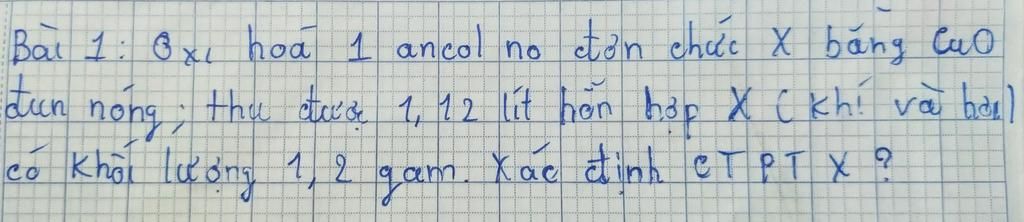 Bài 1: Oxi hoá 1 ancol no đơn chức X bằng CuO
đun nóng; thu được 1,12 lít hỗn hợp X (khí và hơi)
có khối lượng 1,2 gam. Xác định CTPT X?